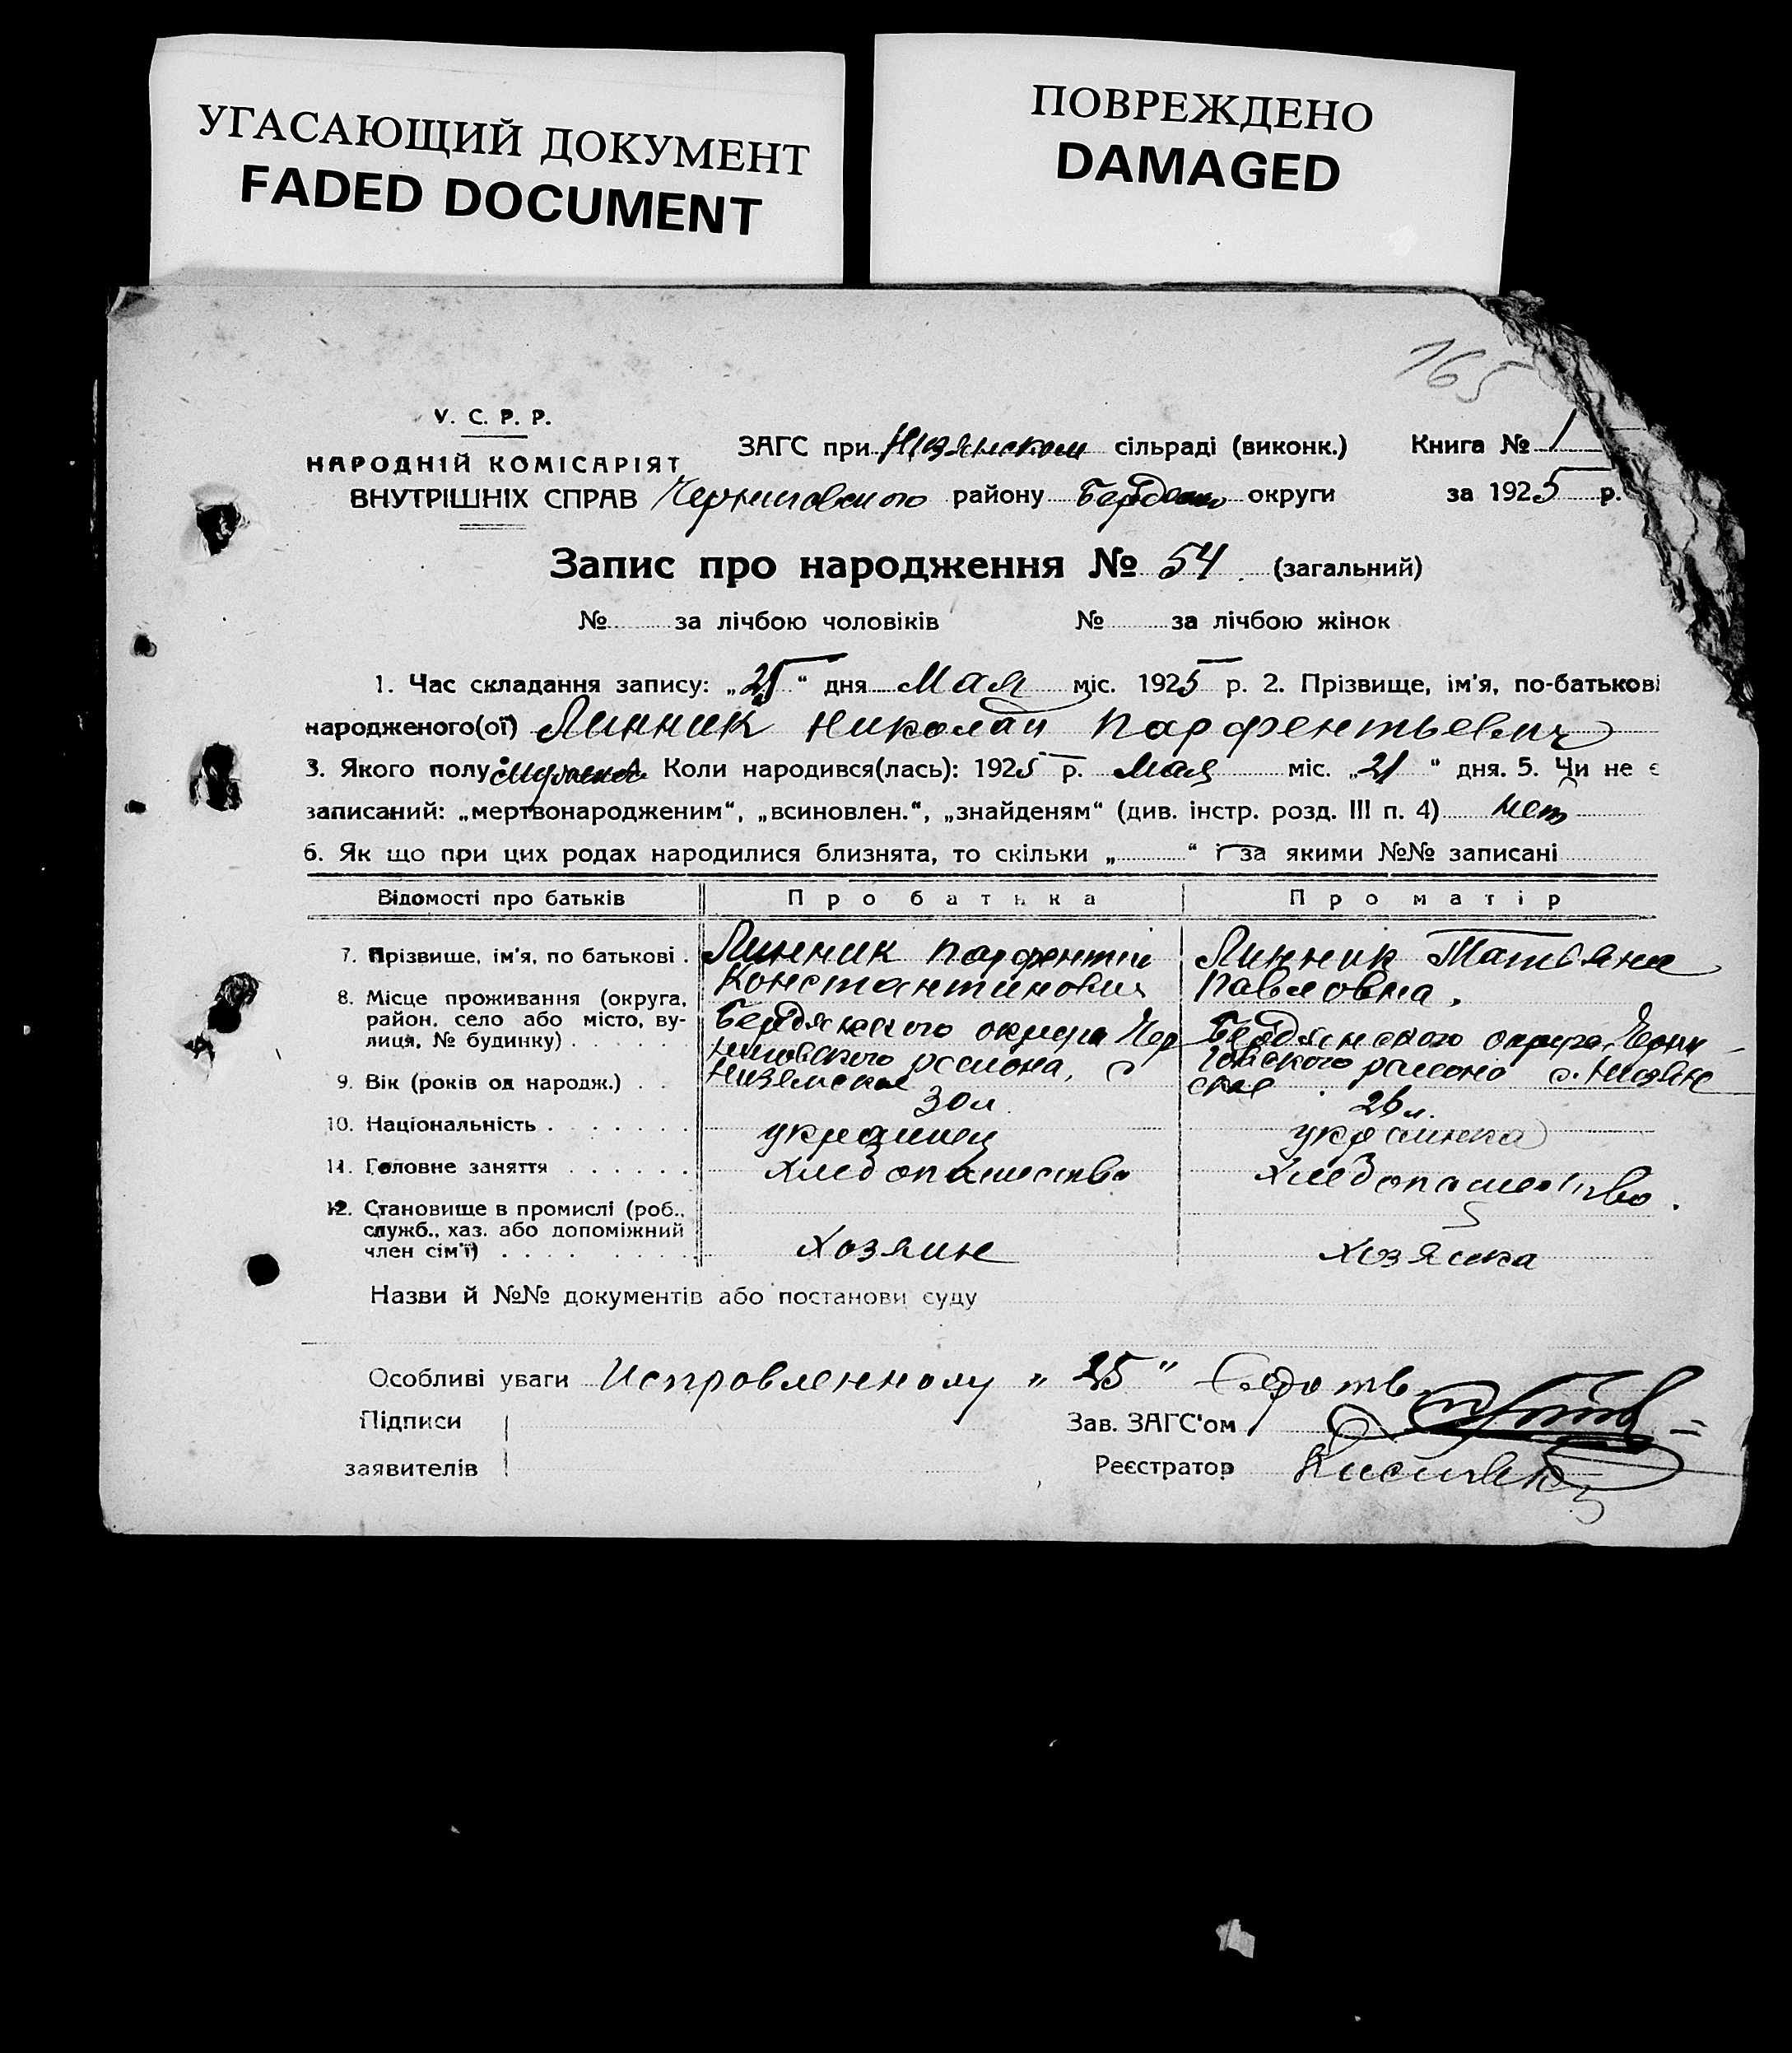 УГАСАЮЩИЙ ДОКУМЕНТ
FADED DOCUMENT
ПОВРЕЖДЕНО
DAMAGED
165
У. С. Р. Р.
НАРОДНІЙ КОМІСАРІЯТ
ВНУТРІШНІХ СПРАВ
ЗАГС при Низянском сільраді (виконк.) Книга № 1
Черниговского району Бердян округи за 1925 р.
Запис про народження № 54 (загальний)
№ за лічбою чоловіків № за лічбою жінок
1. Час складання запису: „25“ дня Мая міс. 1925 р. 2. Прізвище, ім'я, по-батькові
народженого(ої) Линник Николай Парфентьевич
3. Якого полу мужеска 4. Коли народився(лась): 1925 р. Мая міс. „21“ дня. 5. Чи не є
записаний: „мертвонародженим“, „всиновлен.“, „знайденям“ (див. інстр. розд. III п. 4) нет
6. Як що при цих родах народилися близнята, то скільки „ “ і за якими №№ записані
Відомості про батьків Про батька Про матір
7. Прізвище, ім'я, по батькові . Линник Парфентий Линник Татьяна
Константинович Павловна.
8. Місце проживання (округа, район, село або місто, вулиця, № будинку) . . . . .
Бердянского округа Чер
ниговского района, с
Низянское
Бердянского округа Черни
говского району с. Низян
ское
9. Вік (років од народж.) . . 30 л. 26 л.
10. Національність . . . . . . . украинец украинка
11. Головне заняття . . . . . . хлебопашество хлебопашество.
12. Становище в промислі (роб., служб., хаз. або допоміжний член сім'ї) . . . . . . . . . Хозяин хозяйка
Назви й №№ документів або постанови суду
Особливі уваги Исправленному „25“
Підписи
заявителів
Зав. ЗАГС'ом
Реєстратор